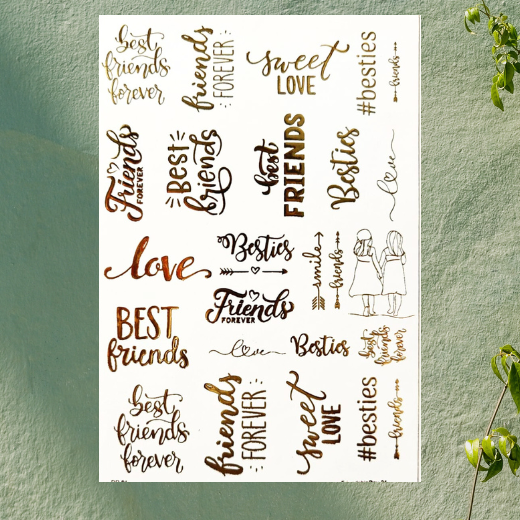 best
friends
forever
friends
FOREVER
sweet
LOVE
#besties
friends
Friends
FOREVER
Best
friends
best
FRIENDS
Besties
love
love
Besties
smile
friends
Friends
FOREVER
BEST
friends
love
Besties
best
friends
forever
best
friends
forever
friends
FOREVER
sweet
LOVE
#besties
friends